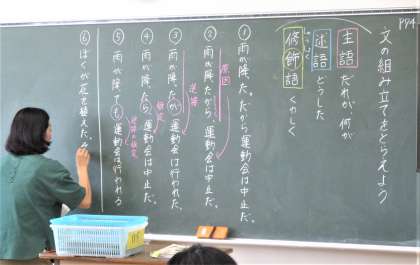 P94
文の組み立てをとらえよう
主語 だれが、何が
述語 どうした
修飾語 くわしく
① 雨が降った。だから運動会は中止だ。
原因
② 雨が降ったから、運動会は中止だ。
逆接
③ 雨が降ったが、運動会は行われた。
仮定
④ 雨が降ったら、運動会は中止だ。
⑤ 雨が降っても、運動会は行われる
⑥ ぼくが花を植えた。